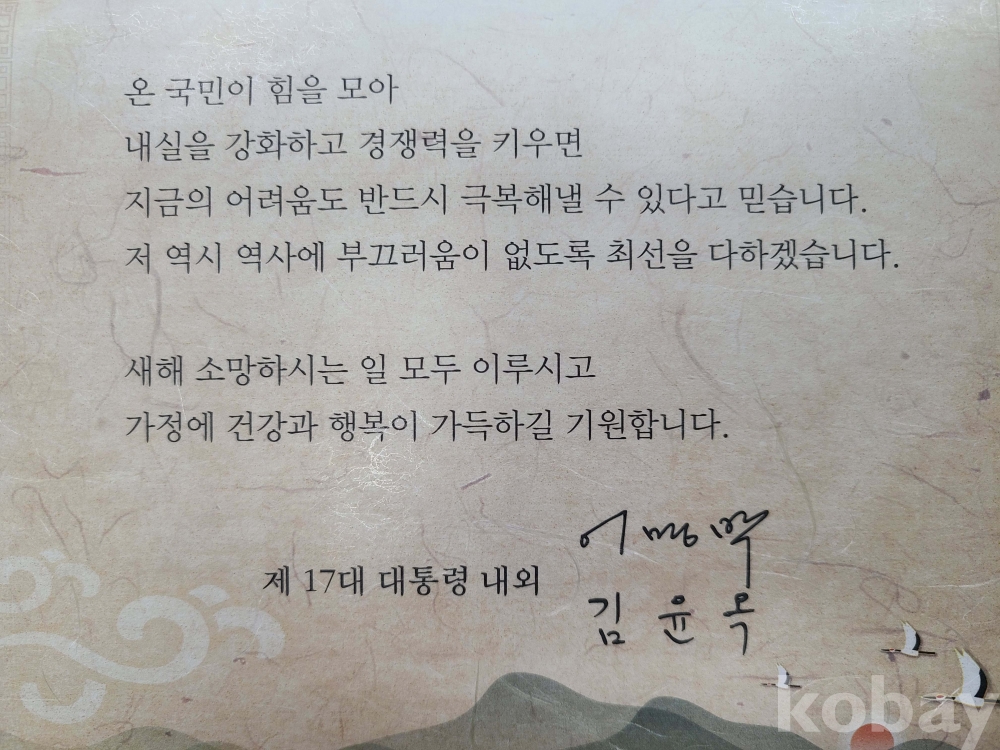 온 국민이 힘을 모아
내실을 강화하고 경쟁력을 키우면
지금의 어려움도 반드시 극복해낼 수 있다고 믿습니다.
저 역시 역사에 부끄러움이 없도록 최선을 다하겠습니다.
새해 소망하시는 일 모두 이루시고
가정에 건강과 행복이 가득하길 기원합니다.
제 17대 대통령 내외
이명박
김윤옥
kobay